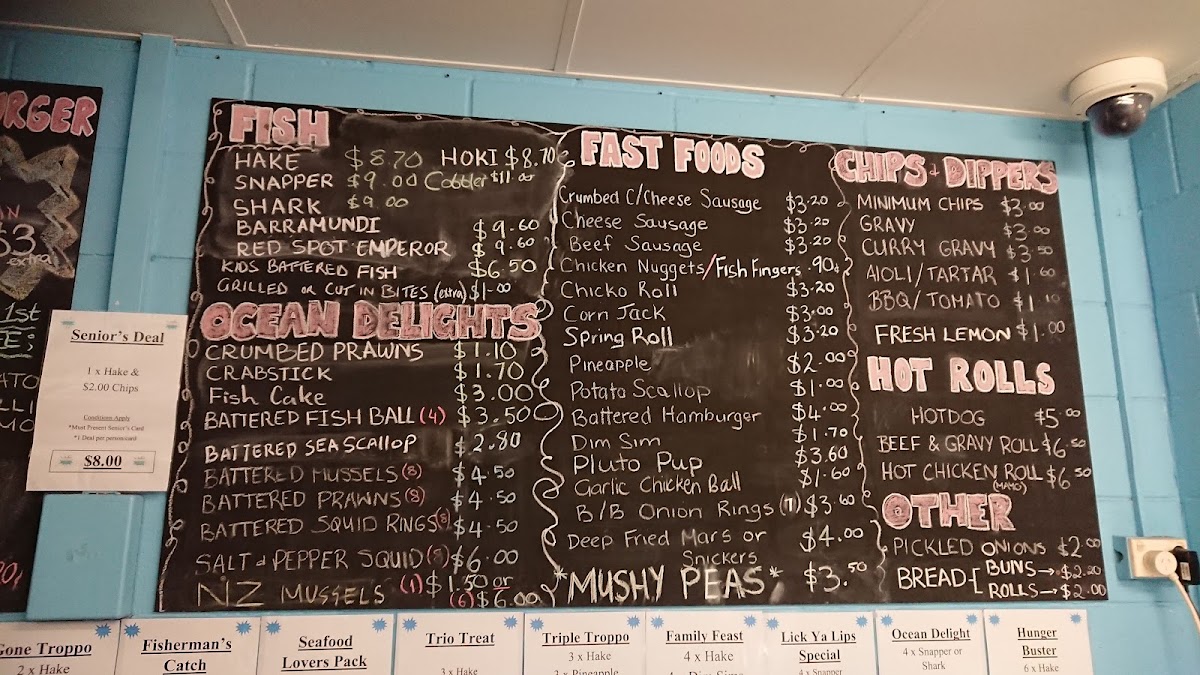 RGER
AN
$3
extra
1st
E:
ATO
LLI
MO
Senior's Deal
1 x Hake &
$2.00 Chips
Conditions Apply
*Must Present Senior's Card
*1 Deal per personcard
$8.00
FISH
HAKE $8.70 HOKI $8.70
SNAPPER $9.00 Cobbler $11.00
SHARK $9.00
BARRAMUNDI $9.60
RED SPOT EMPEROR $9.60
KIDS BATTERED FISH $6.50
GRILLED OR CUT IN BITES (extra) $1.00
OCEAN DELIGHTS
CRUMBED PRAWNS $1.10
CRABSTICK $1.70
Fish Cake $3.00
BATTERED FISH BALL (4) $3.50
BATTERED SEA SCALLOP $2.80
BATTERED MUSSELS (8) $4.50
BATTERED PRAWNS (8) $4.50
BATTERED SQUID RINGS (8) $4.50
SALT & PEPPER SQUID (8) $6.00
NZ MUSSELS (1) $1.50 or
(6) $6.00
FAST FOODS
Crumbed C/Cheese Sausage $3.20
Cheese Sausage $3.20
Beef Sausage $3.20
Chicken Nuggets/Fish Fingers .90¢
Chicko Roll $3.20
Corn Jack $3.00
Spring Roll $3.20
Pineapple $2.00
Potato Scallop $1.00
Battered Hamburger $4.00
Dim Sim $1.70
Pluto Pup $3.60
Garlic Chicken Ball $1.60
B/B Onion Rings (7) $3.60
Deep Fried Mars or $4.00
Snickers
*MUSHY PEAS* $3.50
CHIPS & DIPPERS
MINIMUM CHIPS $3.00
GRAVY $3.00
CURRY GRAVY $3.50
AIOLI/TARTAR $1.60
BBQ/TOMATO $1.10
FRESH LEMON $1.00
HOT ROLLS
HOTDOG $5.00
BEEF & GRAVY ROLL $6.50
HOT CHICKEN ROLL $6.50
(MAYO)
OTHER
PICKLED ONIONS $2.00
BREAD BUNS → $2.20
ROLLS → $2.00
Gone Troppo
2 x Hake
Fisherman's
Catch
Seafood
Lovers Pack
Trio Treat
3 x Hake
Triple Troppo
3 x Hake
3 x Pineapple
Family Feast
4 x Hake
4 x Dim Sims
Lick Ya Lips
Special
4 x Snapper
Ocean Delight
4 x Snapper or
Shark
Hunger
Buster
6 x Hake